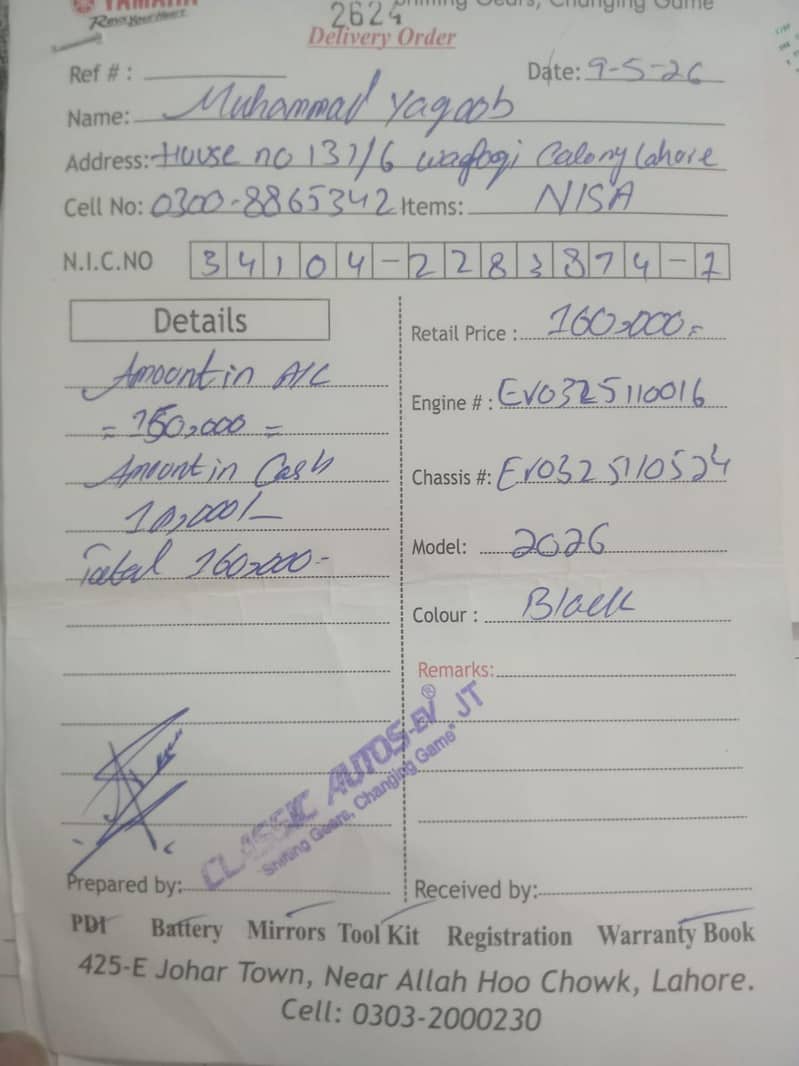 YAMAHA
Revs Your Heart
Shifting Gears, Changing Game
2624
Delivery Order
Ref # :
Date: 9-5-26
Name: Muhammad Yaqoob
Address: House no 137/6 Colony Lahore
Cell No: 0300-8865342 Items: NISA
N.I.C.NO 34104-2283874-1
Details
Retail Price : 160,000=
Amount in A/C
Engine # : EV0325110016
= 150,000 =
Amount in Cash
Chassis #: EV0325110524
10,000/-
Model: 2026
Total 160,000-
Colour : Black
Remarks:
CLASSIC AUTOS-EV® JT
"Shifting Gears, Changing Game"
Prepared by:
Received by:
PDI Battery Mirrors Tool Kit Registration Warranty Book
425-E Johar Town, Near Allah Hoo Chowk, Lahore.
Cell: 0303-2000230